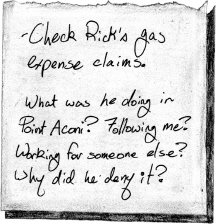 -Check Rick's gas
expense claims.
What was he doing in
Point Aconi? Following me?
Working for someone else?
Why did he deny it?